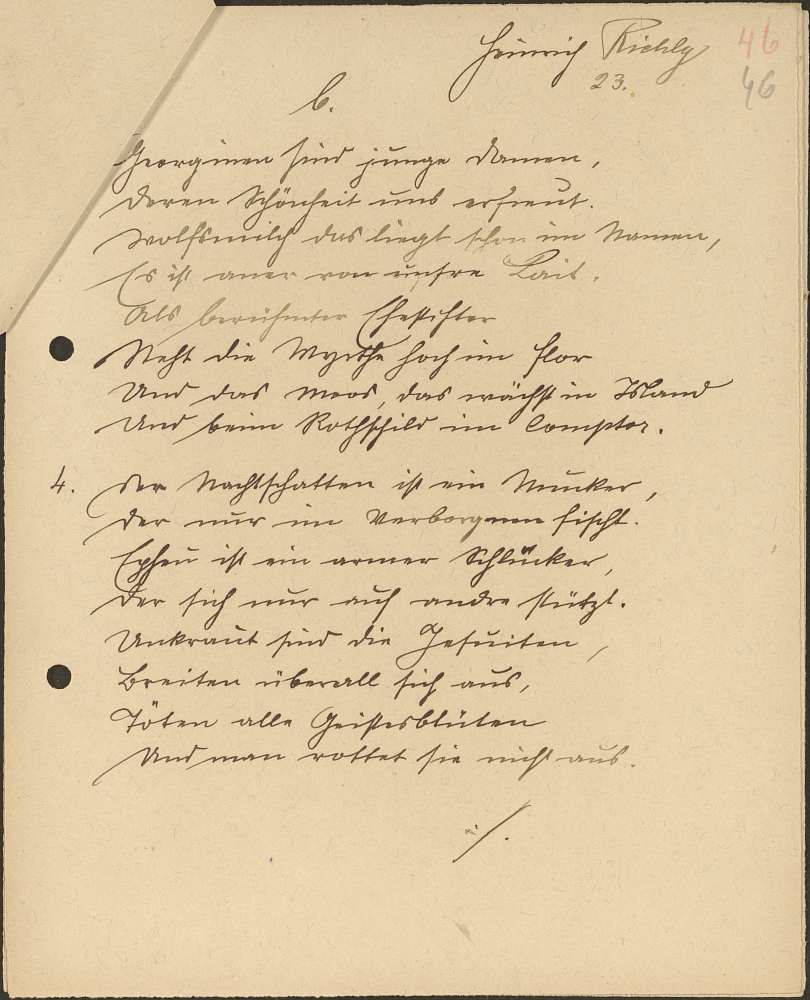 Heinrich Richly 46
23. 46
b.
Georginen sind junge Damen,
Deren Schönheit uns erfreut.
Wolfsmilch das liegt schon im Namen,
Es ist aner von unsre Lait.
Als berühmter Ehestifter
Steht die Myrthe hoch im Flor
Und das Moos, das wächst in Island
Und beim Rothschild im Comptor.
4. Der Nachtschatten ist ein Mucker,
Der nur im Verborgnen fischt.
Epheu ist ein armer Schlucker,
Der sich nur auf andre stützt.
Unkraut sind die Jesuiten,
Breiten überall sich aus,
Töten alle Geistesblüten
Und man rottet sie nicht aus.
./.